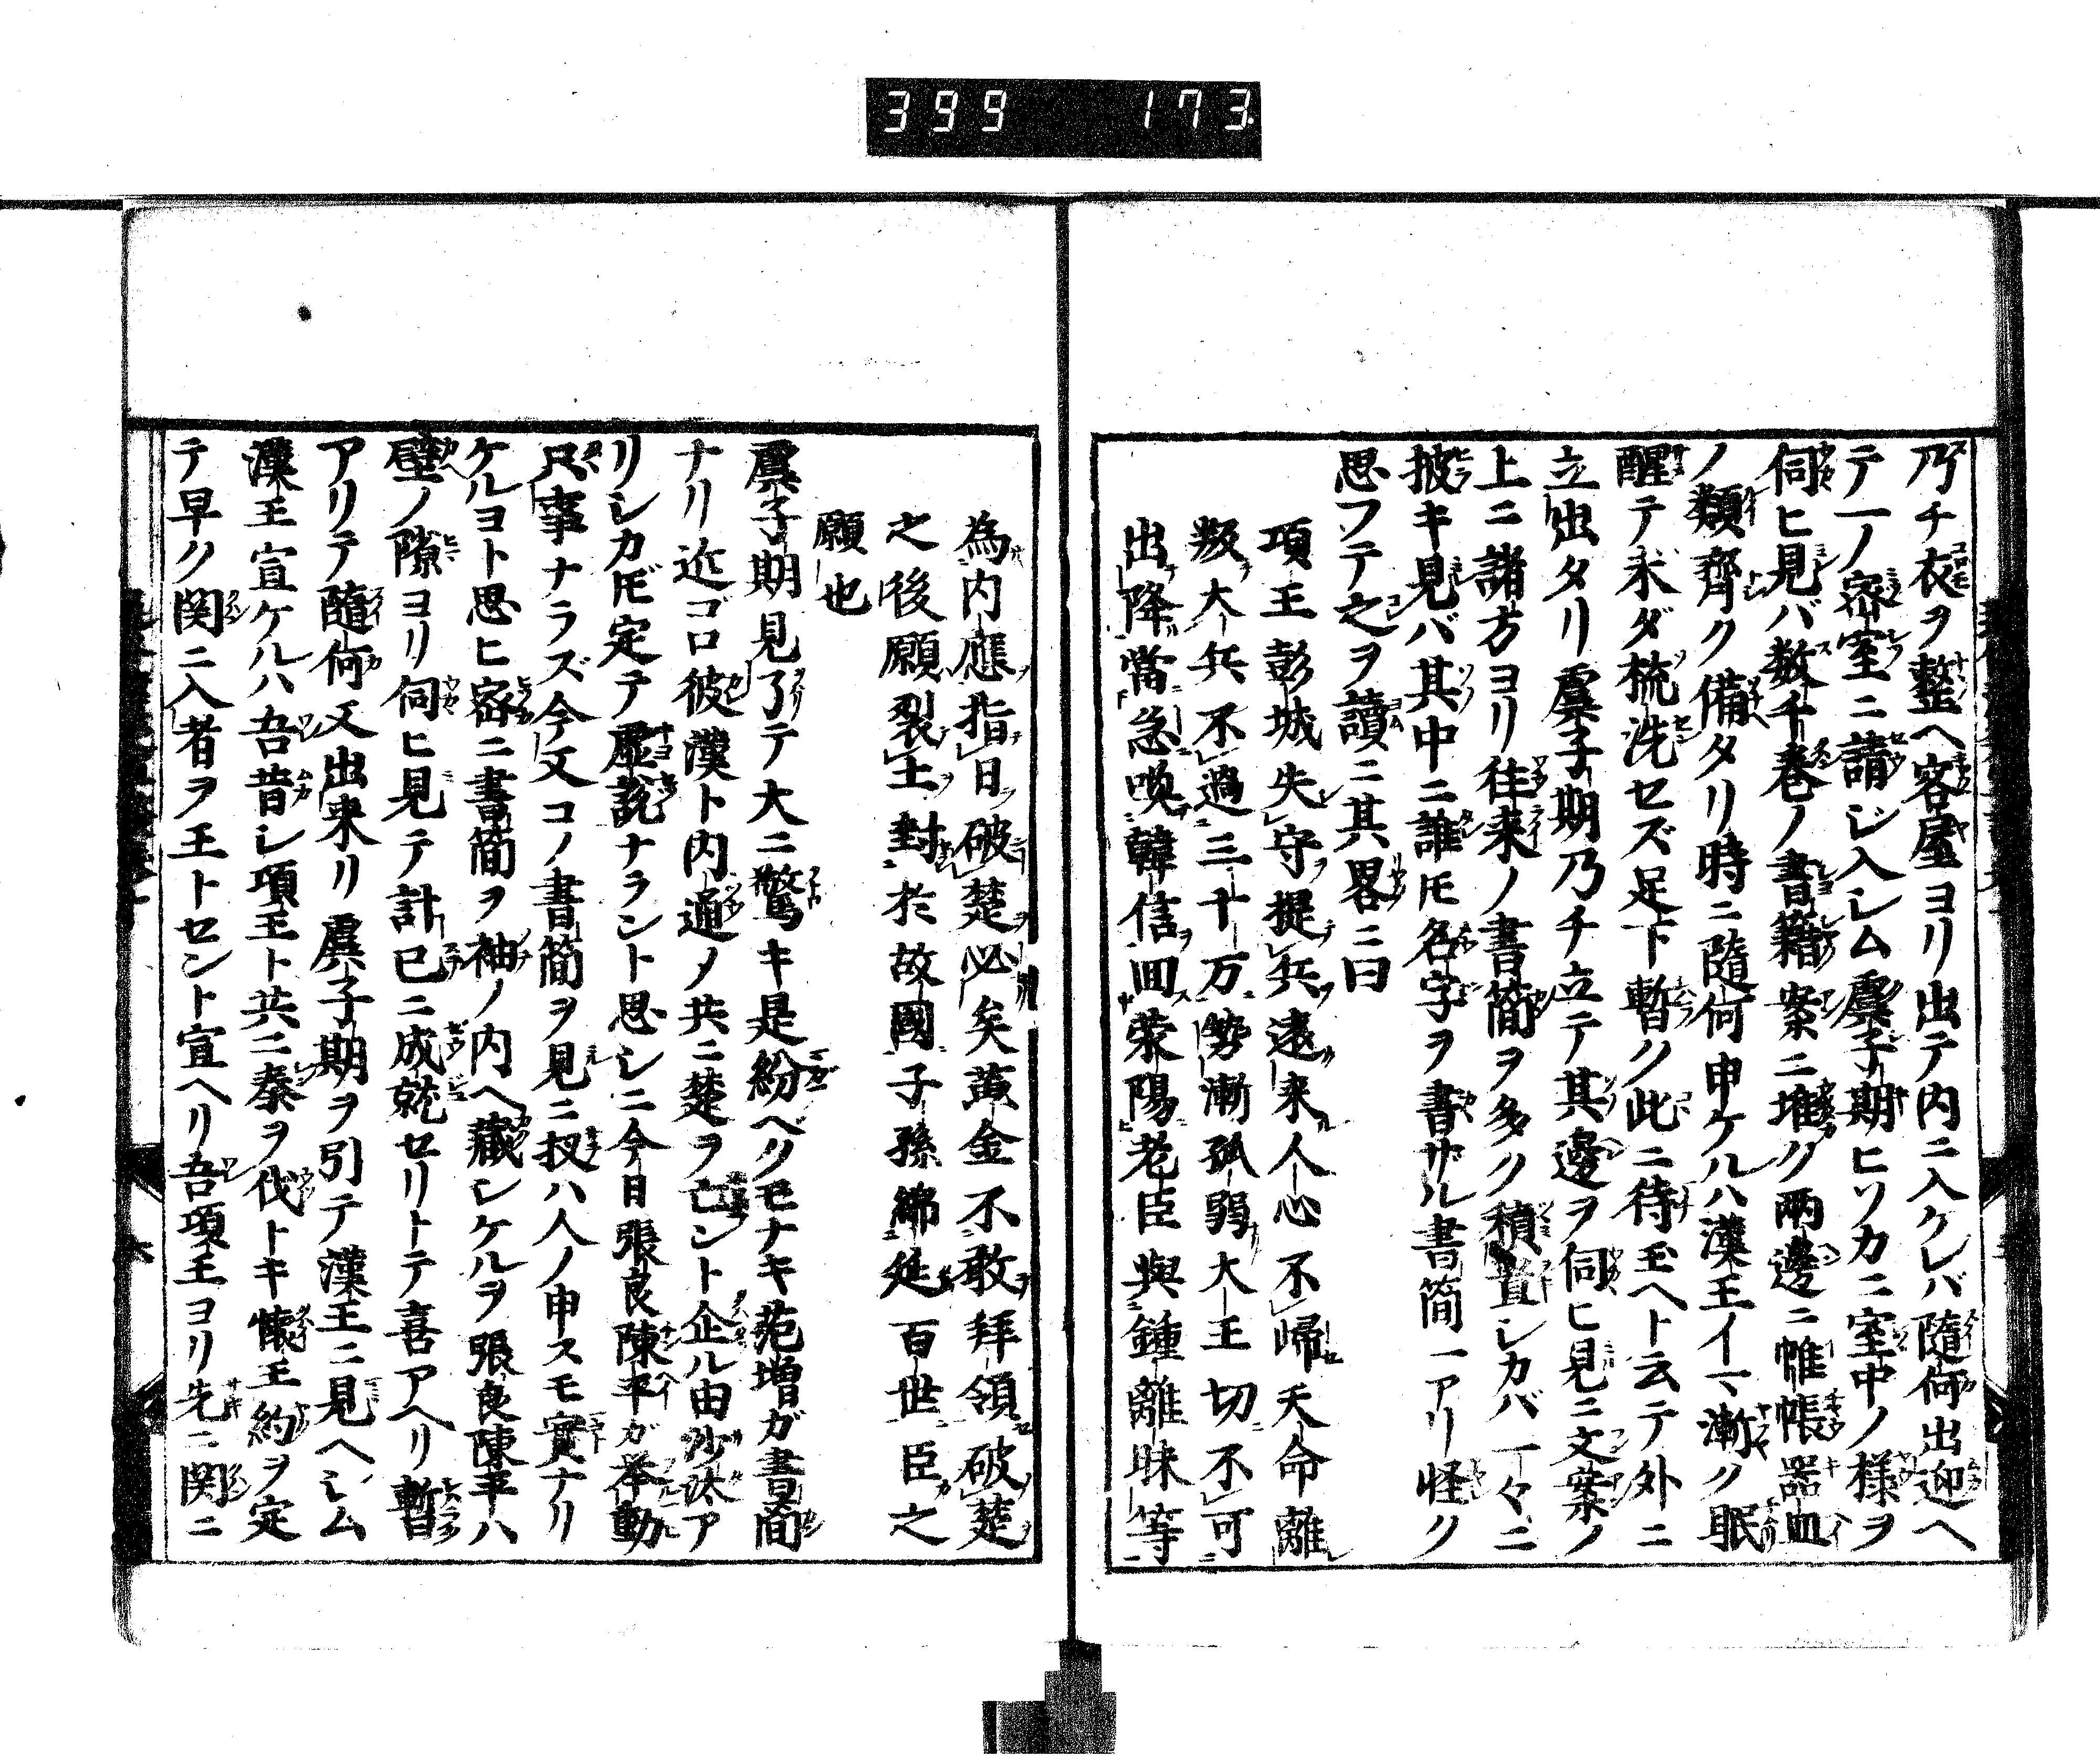 399 173
乃チ衣ヲ整ヘ客屋ヨリ出テ内ニ入ケレバ隨何出迎ヘ
テ一ノ密室ニ請ジ入レム虞子期ヒソカニ室中ノ様ヲ
伺ヒ見バ数千巻ノ書籍案ニ堆ク両邊ニ帷帳器皿
ノ類齊ク備タリ時ニ隨何申ケルハ漢王イマ漸ク眠
醒テ未ダ梳洗セズ足下暫ク此ニ待玉ヘト云テ外ニ
立出タリ虞子期乃チ立テ其邊ヲ伺ヒ見ニ文案ノ
上ニ諸方ヨリ徃来ノ書簡ヲ多ク積置シカバ一々ニ
披キ見バ其中ニ誰𪜈名字ヲ書ザル書簡一アリ怪ク
思フテ之ヲ讀ニ其畧ニ曰
項王彭城失守提兵遠来人心不歸天命離
叛大兵不過三十万勢漸孤弱大王切不可
出降當急喚韓信囬荥陽老臣與鍾離昧等
為内應指日破楚必矣黄金不敢拜領破楚
之後願裂土封於故國子孫綿延百世臣之
願也
虞子期見了テ大ニ驚キ是紛ベクモナキ范増ガ書簡
ナリ近ゴロ彼漢ト内通ノ共ニ楚ヲ亡ント企ル由沙汰ア
リシカ𪜈定テ虚説ナラント思シニ今日張良陳平ガ挙動
只事ナラズ今又コノ書簡ヲ見ニ扠ハ人ノ申スモ實ナリ
ケルヨト思ヒ密ニ書簡ヲ袖ノ内ヘ藏シケルヲ張良陳平ハ
壁ノ隙ヨリ伺ヒ見テ計已ニ成就セリトテ喜アヘリ暫
アリテ隨何又出来リ虞子期ヲ引テ漢王ニ見ヘシム
漢王宣ケルハ吾昔シ項王ト共ニ秦ヲ伐トキ懐王約ヲ定
テ早ク関ニ入者ヲ王トセント宣ヘリ吾項王ヨリ先ニ関ニ